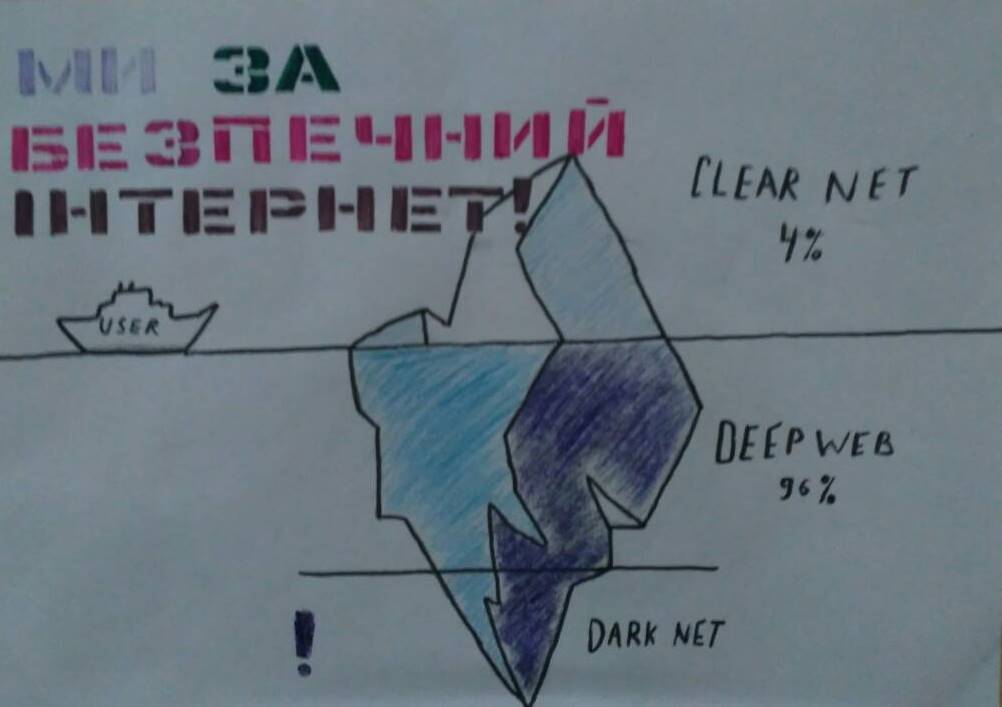 МИ ЗА
БЕЗПЕЧНИЙ
ІНТЕРНЕТ!
CLEAR NET
4%
USER
DEEP WEB
96%
!
DARK NET